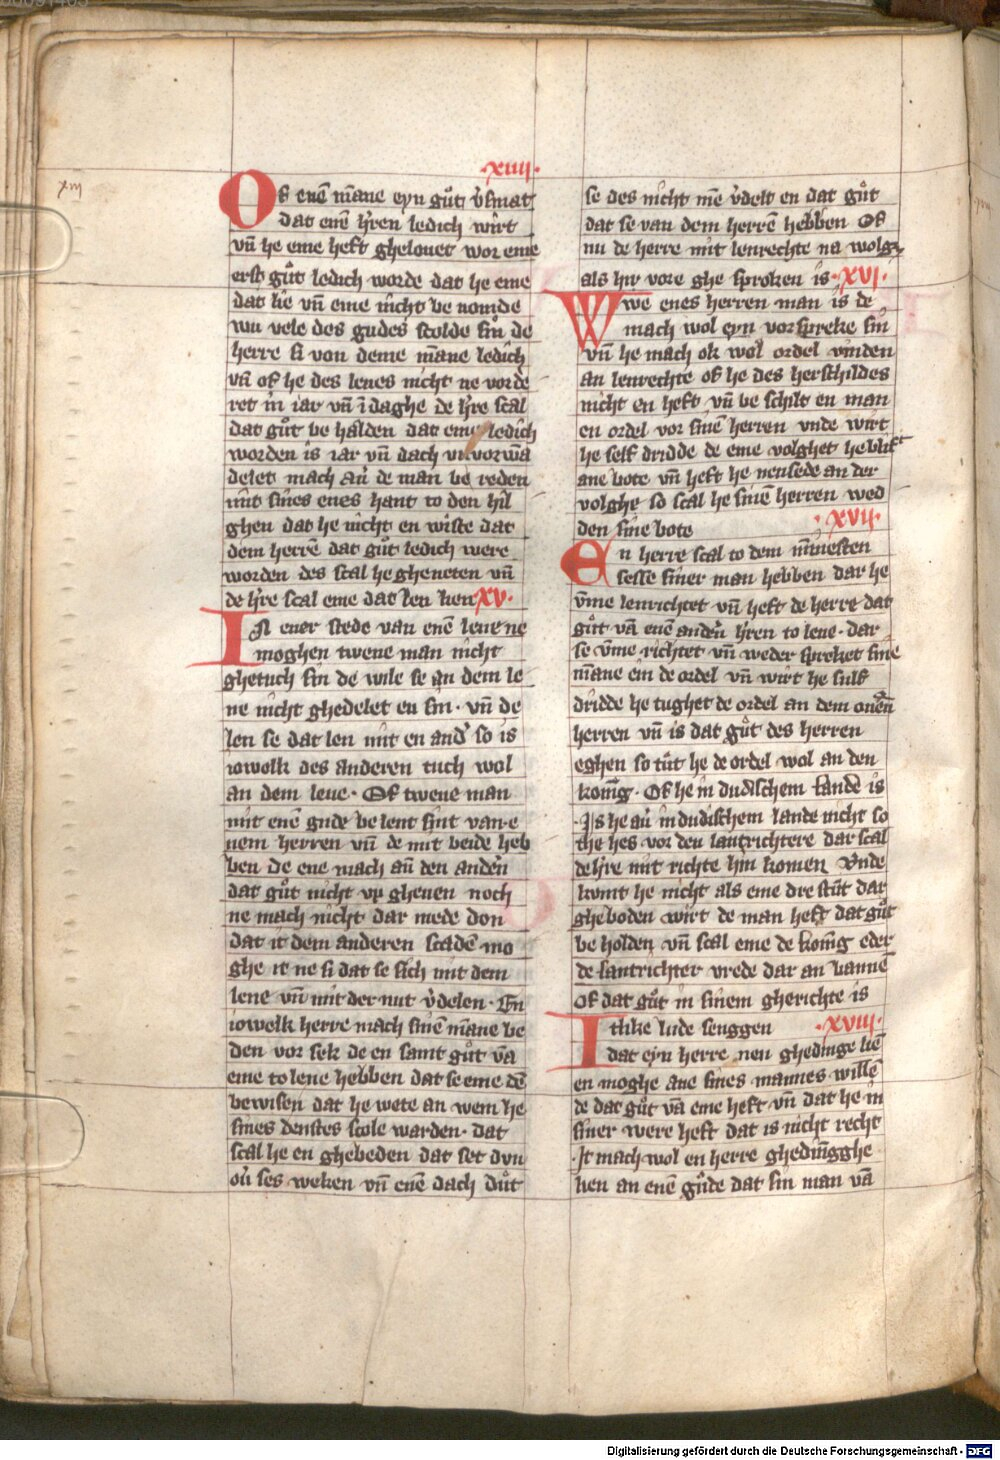 xiiij
·xiiij·
Of enē māne eyn gůt v̓smat
dat enē h̓ren ledich wirt
vn̄ he eme heft ghelouet wor eme
erst gůt ledich worde dat he eme
dat lie vn̄ eme nicht be nomde
wu vele des gudes scolde sin de
herre si von deme māne ledich
vn̄ of he des lenes nicht ne vorde
ret in iar vn̄ ī daghe de h̓re scal
dat gůt be halden dat eme ledich
worden is iar vn̄ dach vn vorwā
delet mach au̓ de man be reden
mit sines enes hant to den hil
ghen dat he nicht en wiste dat
dem herrē dat gůt ledich were
worden des scal he gheneten vn̄
de h̓re scal eme dat len lien xv·
In ener stede van enē lene ne
moghen twene man nicht
ghetuch sin de wile se an dem le
ne nicht ghedelet en sin · vn̄ de
len se dat len mit en and̓ so is
iowelk des anderen tuch wol
an dem lene · Of twene man
mit enē gude be lent sint van e
nem herren vn̄ de mit beide heb
ben De ene mach an̄ den andern̄
dat gůt nicht vp gheuen noch
ne mach nicht dar mede don
dat it dem anderen scadē mo
ghe it ne si dat se sich mit dem
lene vn̄ mit der nut v̓delen · En
iowelk herre mach sinē māne be
den vor sek de en samt gůt vā
eme to lene hebben dat se eme dē
bewisen dat he wete an wem he
sines denstes scole warden · dat
scal he en ghebeden dat set dvn
ou̓ ses weken vn̄ enē dach důt
se des nicht mē v̓delt en dat gůt
dat se van dem herrē hebben Of
nu de herre mit lenrechte na wolget
als hir vore ghe sproken is · xvj ·
Wwe enes herren man is de
mach wol eyn vorspreke sin
vn̄ he mach ok wol ordel vinden
an lenrechte of he des herschildes
nicht en heft vn̄ be schilt en man
en ordel vor sinē herren vnde wirt
he self dridde de eme volghet he blift
ane bote vn̄ heft he nensede an der
volghe so scal he sinē herren wed
den sine bote
· xvij ·
En herre scal to dem minnesten
sesse siner man hebben dar he
v̄me lenrichtet vn̄ heft de herre dat
gůt vā enē andern̄ h̓ren to lene · dar
se v̄me richtet vn̄ weder spreket sine
māne ein de ordel vn̄ wirt he sulf
dridde he tughet de ordel an dem ouen̄
herren vn̄ is dat gůt des herren
eghen so tůt he de ordel wol an den
konīg · Of he in dudischem lande is
· Is he au̓ in dudischem lande nicht so
the hes vor den lantrichtere dar scal
de h̓re mit richte hin komen Vnde
kumt he nicht als eme dre stůt dar
gheboden wirt de man heft dat gůt
be holden vn̄ scal eme de konīg eder
de lantrichter vrede dar an bannē
Of dat gůt in sinem gherichte is
Itlike lude seuggen · xviij ·
dat eyn herre nen ghedinge liē
en moghe ane sines mannes willē
de dat gůt vā eme heft vn̄ dat he in
siner were heft dat is nicht recht
· It mach wol en herre ghedīngghe
lien an enē gůde dat sin man vā
Digitalisierung gefördert durch die Deutsche Forschungsgemeinschaft - DFG